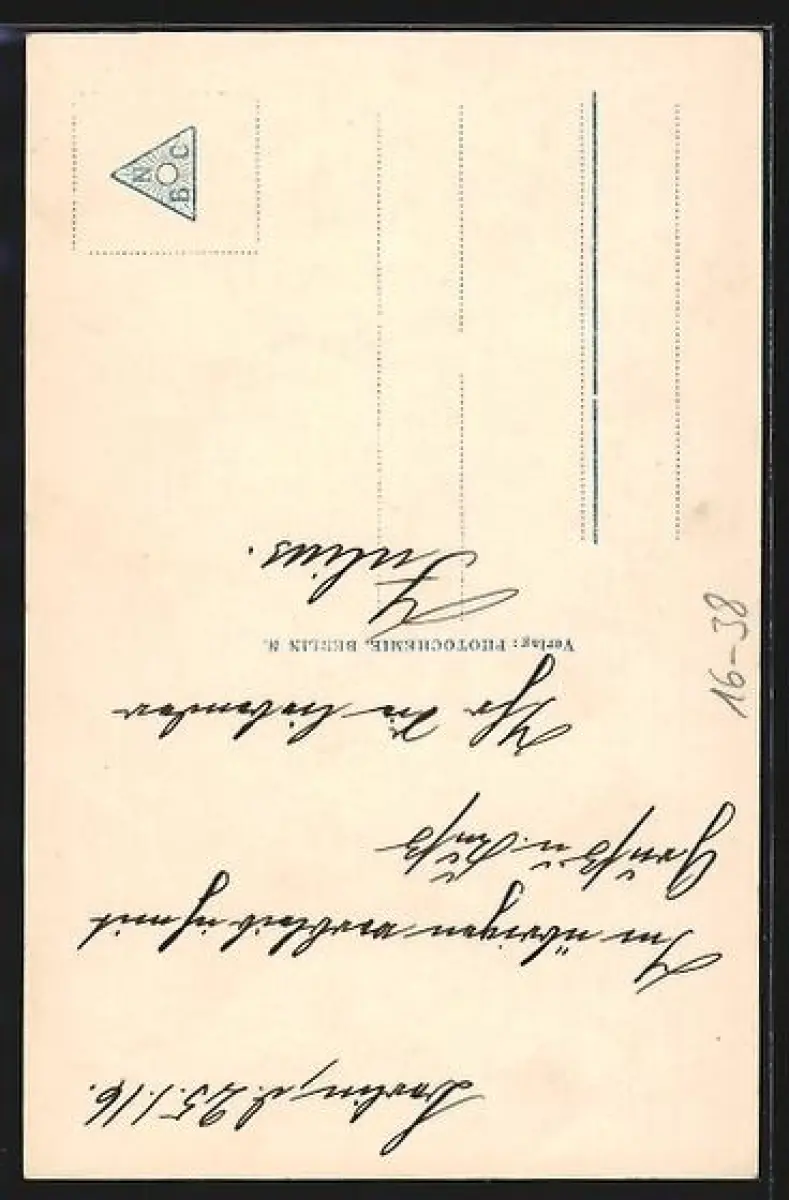 Berlin, d. 25.1.16.
Im übrigen verbleib ich mit
Gruß u. Kuß
Ihr Sie liebender
Julius.
Verlag: PHOTOCHEMIE, BERLIN N.
N B C
16-38